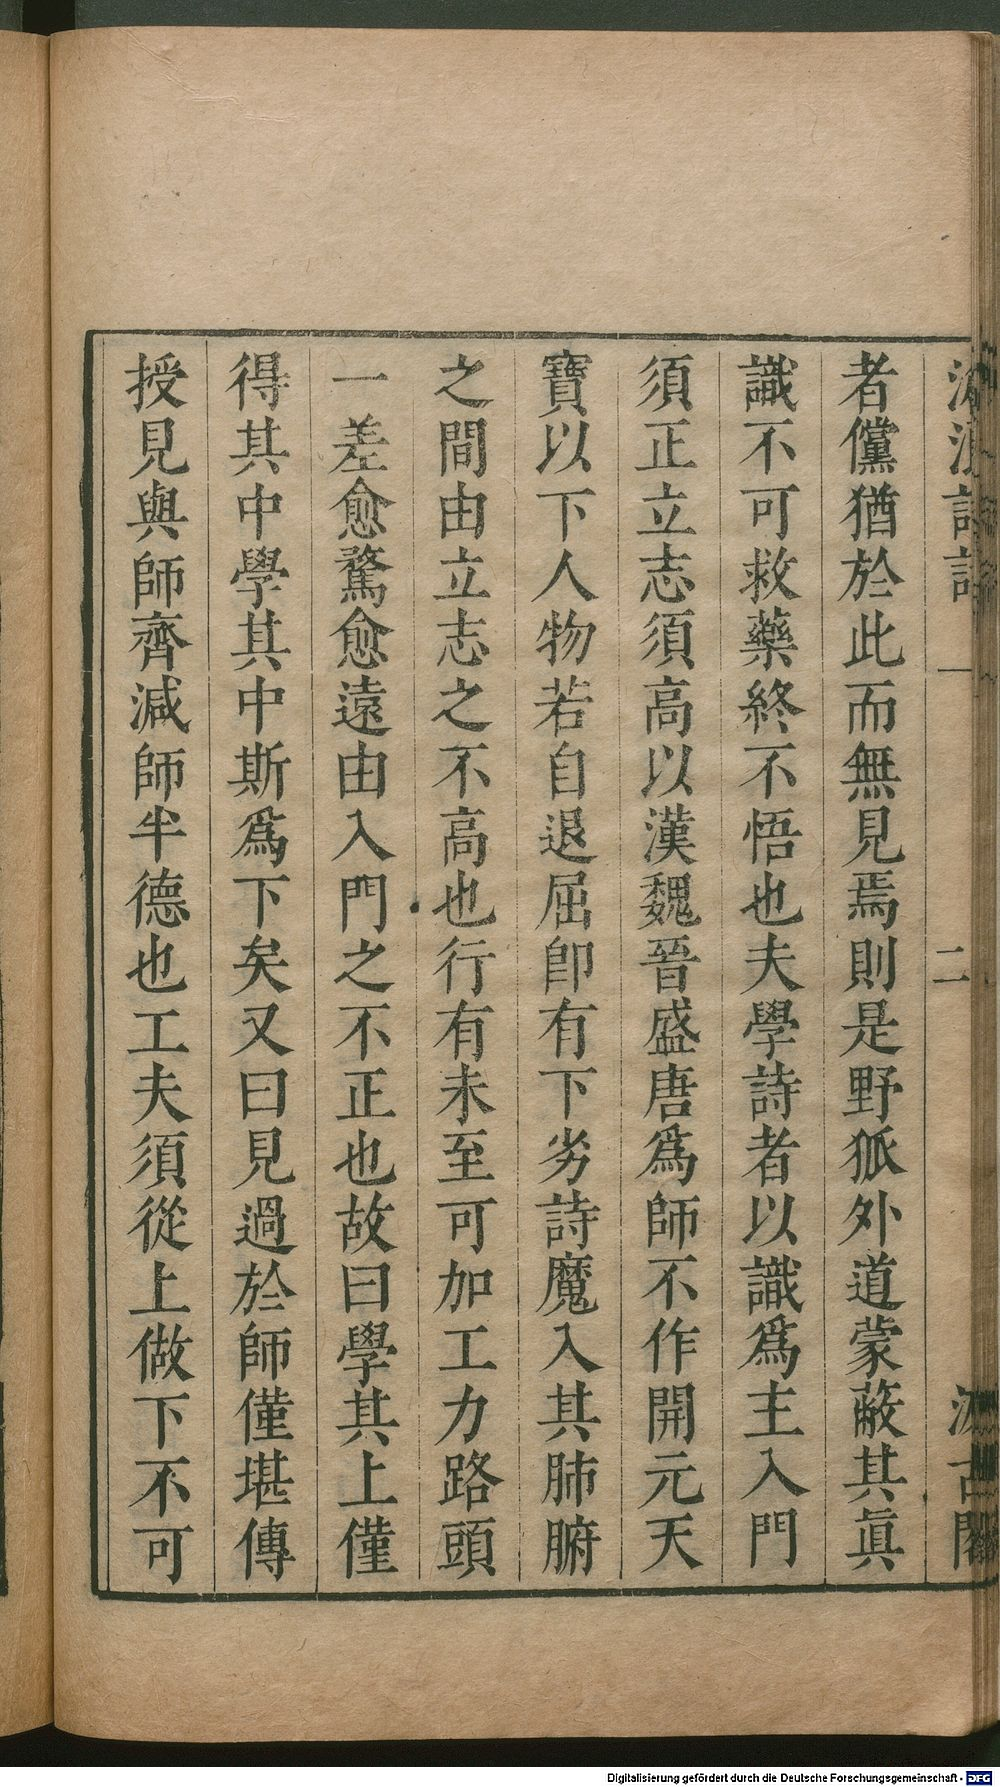 滄浪詩話 一 二 汲古閣
者儻猶於此而無見焉則是野狐外道蒙蔽其眞
識不可救藥終不悟也夫學詩者以識爲主入門
須正立志須高以漢魏晉盛唐爲師不作開元天
寶以下人物若自退屈卽有下劣詩魔入其肺腑
之間由立志之不高也行有未至可加工力路頭
一差愈騖愈遠由入門之不正也故曰學其上僅
得其中學其中斯爲下矣又曰見過於師僅堪傳
授見與師齊減師半德也工夫須從上做下不可
Digitalisierung gefördert durch die Deutsche Forschungsgemeinschaft - DFG